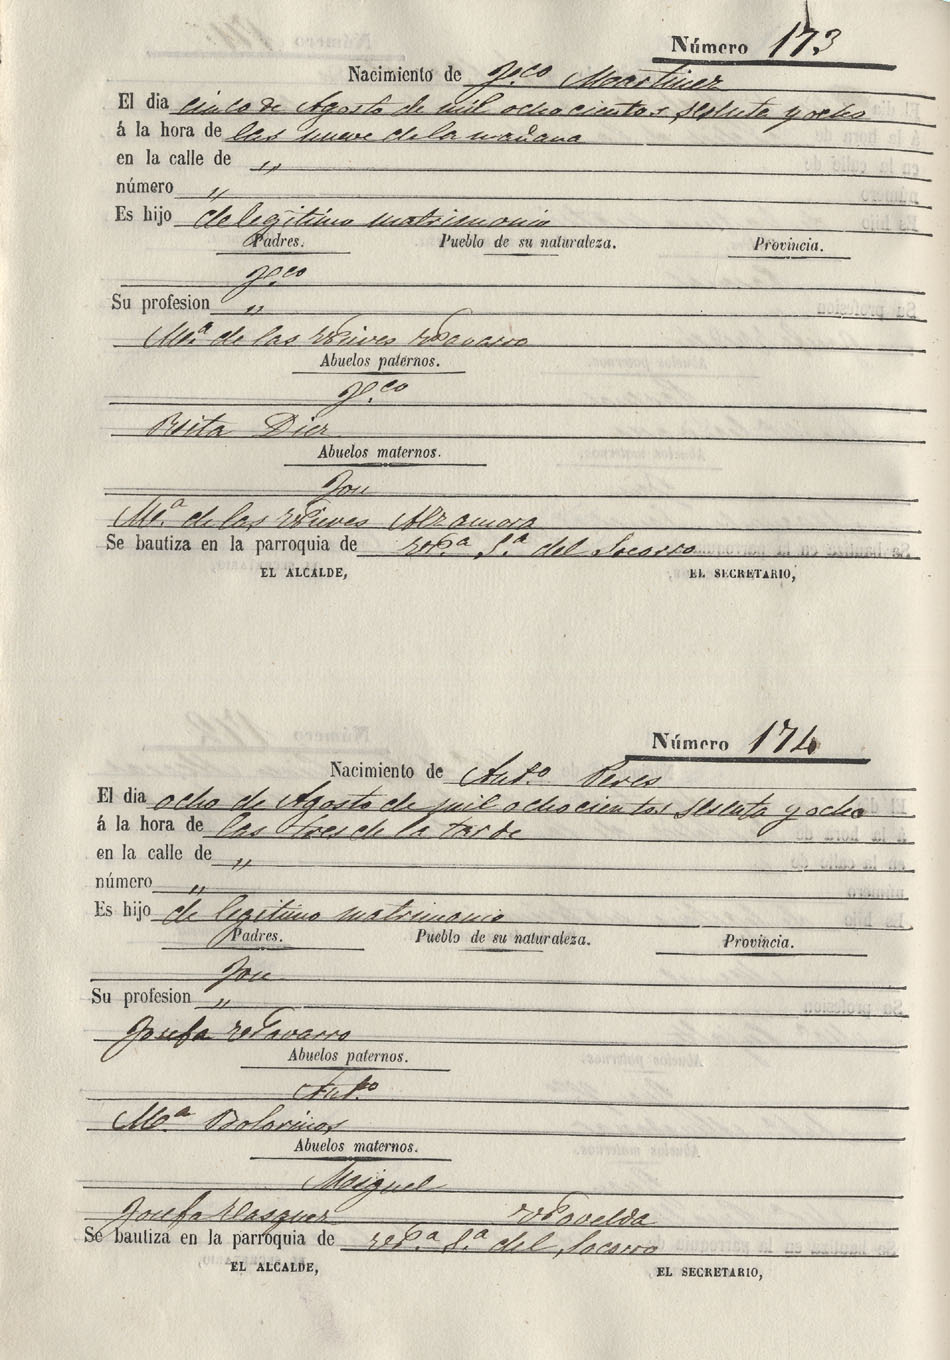 Número 173
Nacimiento de Fco Martinez
El dia cinco de Agosto de mil ochocientos sesenta y ocho
á la hora de las nueve de la mañana
en la calle de "
número "
Es hijo de legitimo matrimonio
Padres. Pueblo de su naturaleza. Provincia.
Fco
Su profesion "
Ma de las Nieves Navarro
Abuelos paternos.
Fco
Rita Dier
Abuelos maternos.
José
Ma de las Nieves Alzamora
Se bautiza en la parroquia de Na Sa del Socorro
EL ALCALDE, EL SECRETARIO,
Número 174
Nacimiento de Anto Peres
El dia ocho de Agosto de mil ochocientos sesenta y ocho
á la hora de las tres de la tarde
en la calle de "
número "
Es hijo de legitimo matrimonio
Padres. Pueblo de su naturaleza. Provincia.
José
Su profesion "
Josefa Navarro
Abuelos paternos.
Anto
Ma Bolarinos
Abuelos maternos.
Miguel
Josefa Vasquez Novelda
Se bautiza en la parroquia de Na Sa del Socorro
EL ALCALDE, EL SECRETARIO,